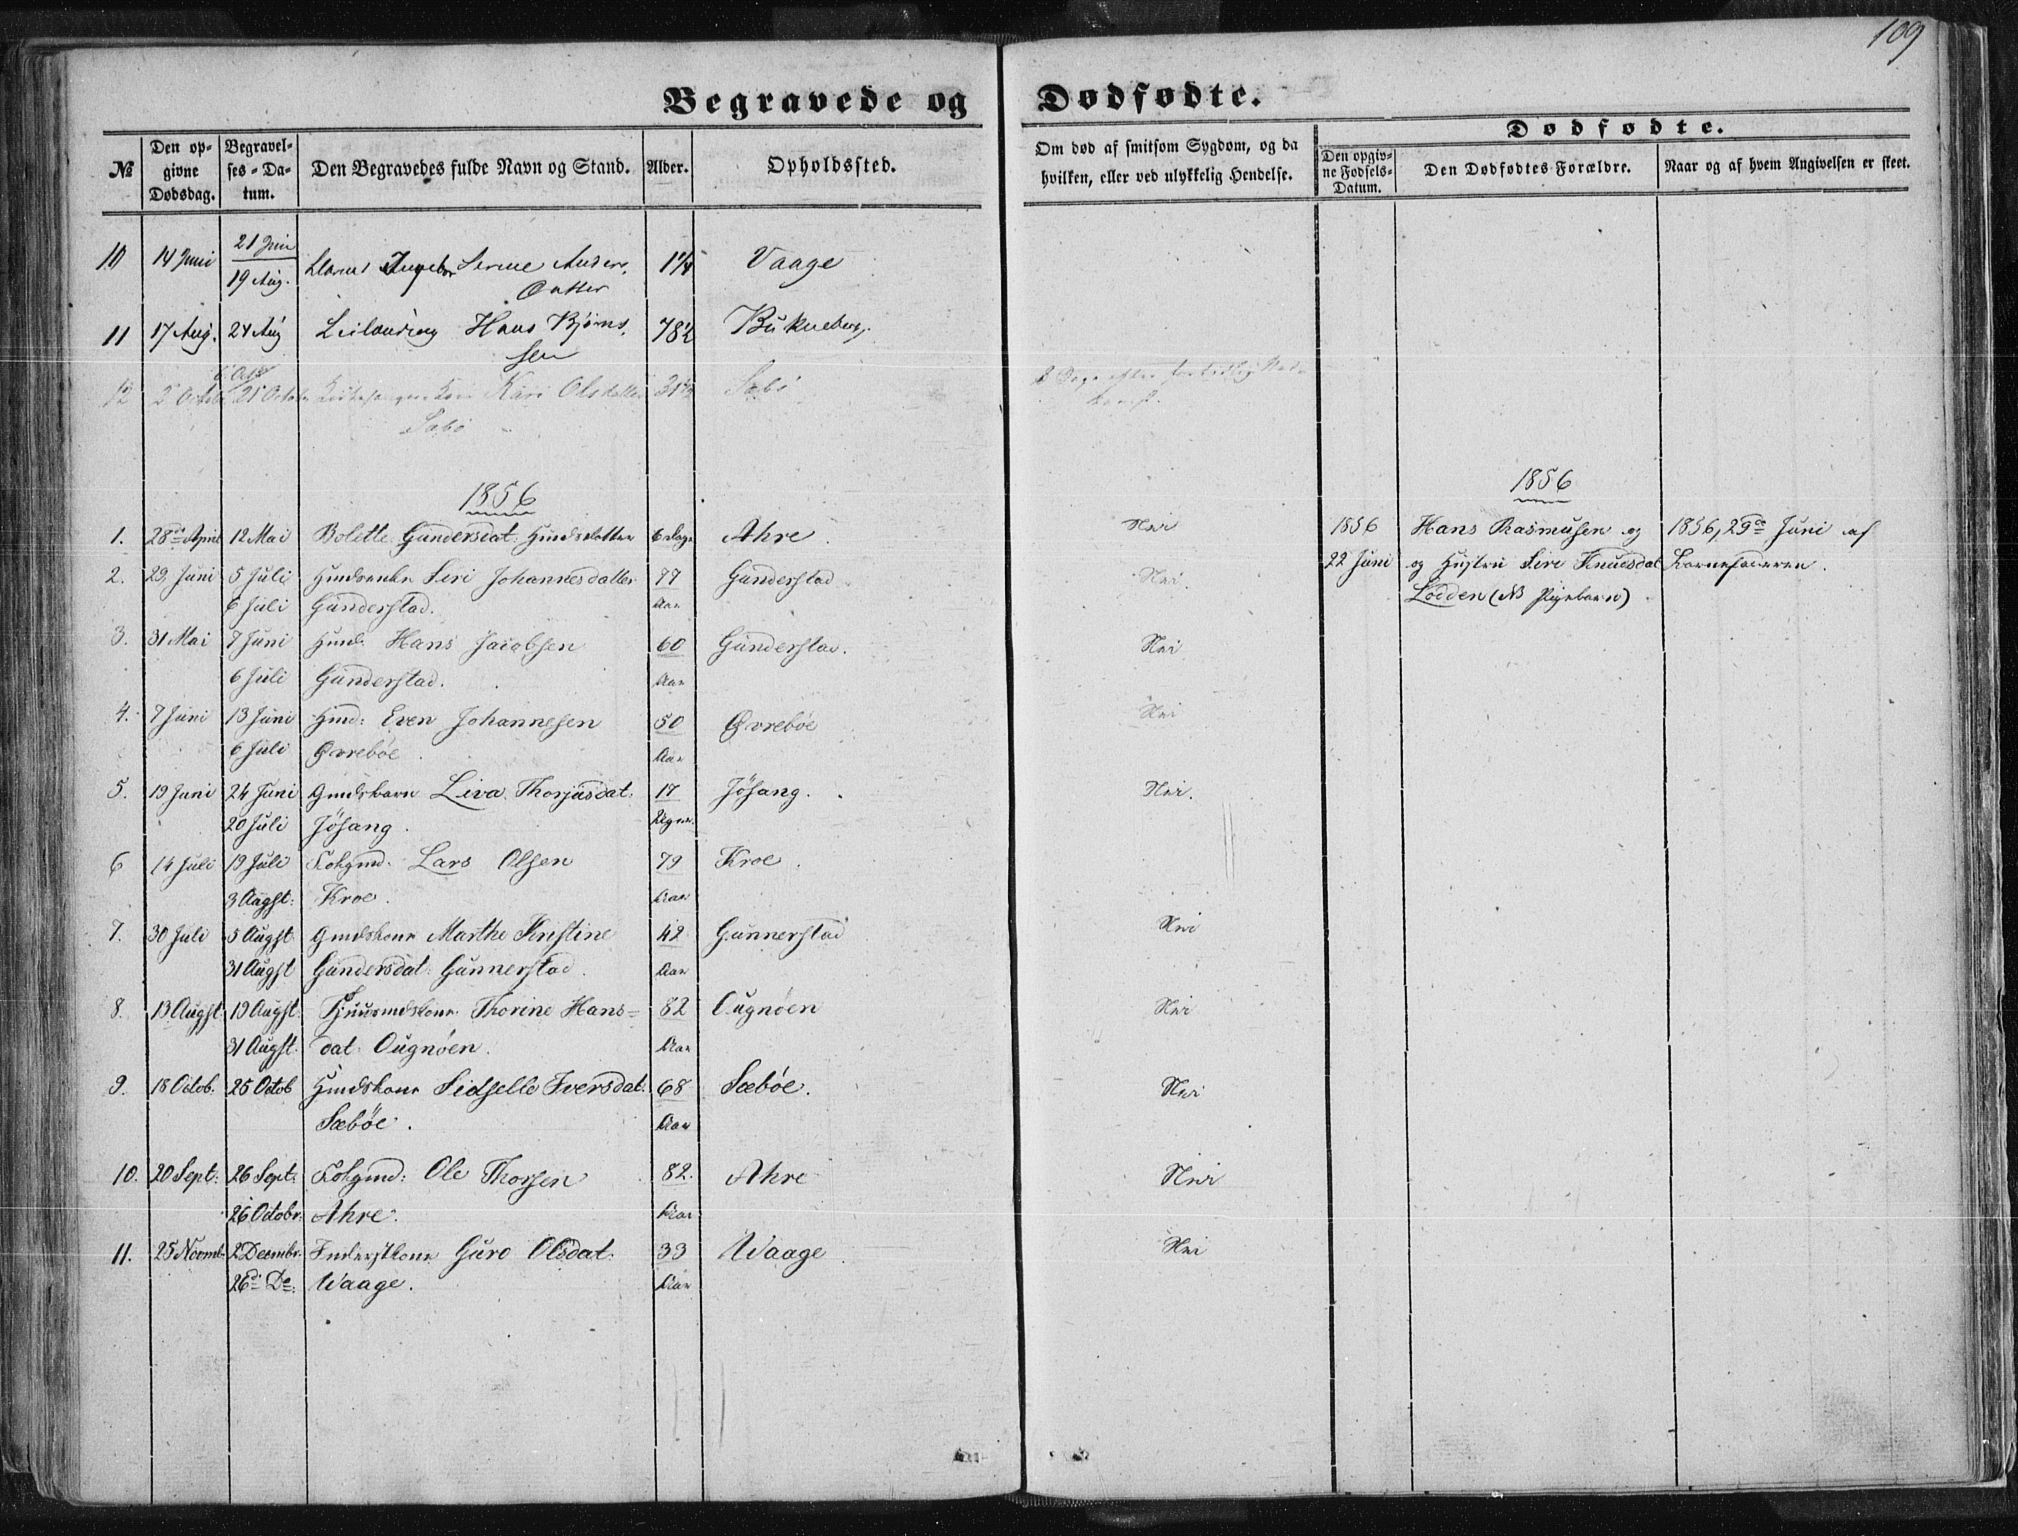 109
Begravede og Dødfødte.
Dødfødte.
№ Den opgivne Dødsdag. Begravelses-Datum. Den Begravedes fulde Navn og Stand. Alder. Opholdssted. Om død af smitsom Sygdom, og da hvilken, eller ved ulykkelig Hendelse. Den opgivne Fødsels-Datum. Den Dødfødtes Forældre. Naar og af hvem Angivelsen er skeet.
10 14 Juni 21 Juni Serine Anders 1¼ Vaage
19 Aug. Datter
11 17 Aug. 24 Aug Hans Bjørns 78½ Bukneberg.
sen
12 2 Octob 21 Octob Kari Olsdatter 31½ Sæbø
Sæbø
1856
1856
1. 28de April 12 Mai Bolette Gundersdat: Huusmdsdatter 6 Dage Ahre. Nei 1856 Hans Rasmusen og 1856, 29de Juni af
2. 29. Juni 5 Juli Siri Johannesdatter 77 Gunderstad Nei. 22 Juni og Hustru Siri Knuesdat Barnefaderen.
6 Juli Gunderstad. Aar Lodden (NB Pigebarn)
3. 31 Mai 7 Juni Huusmd. Hans Jacobsen 60 Gunderstad. Nei
6 Juli Gunderstad. Aar
4. 7 Juni 13 Juni Even Johannesen 50 Øvrebøe Nei
6 Juli Øvrebøe. Aar
5. 19 Juni 24 Juni Gmdsbarn Liva Thorjusdat: 17 Jøsang. Nei.
20 Juli Jøsang. Uger.
6 14 Juli 19 Juli Folgmd. Lars Olsen 79 Kroe.
3 Augst: Kroe. Aar
7. 30 Juli 5 Augst Gmdskone Marthe Kristine 42 Gunnerstad Nei
31 Augst Gundersdat: Gunnerstad. Aar
8. 13 Augst 19 Augst. Thorine Hans= 82 Ougnøen Nei
31 Augst. dat: Ougnøen. Aar
9. 18 Octob. 25 Octob Sidselle Iversdat: 68 Sæbøe. Nei
Sæbøe. Aar
10. 20 Sept: 26 Sept: Folgmd: Ole Thorsen 82. Ahre Nei
26 Octobr: Ahre. Aar
11. 25 Novmb. 2 Decmbr. Inderstkone Guro Olsdat: 33 Waage Nei
26de De: Waage. Aar